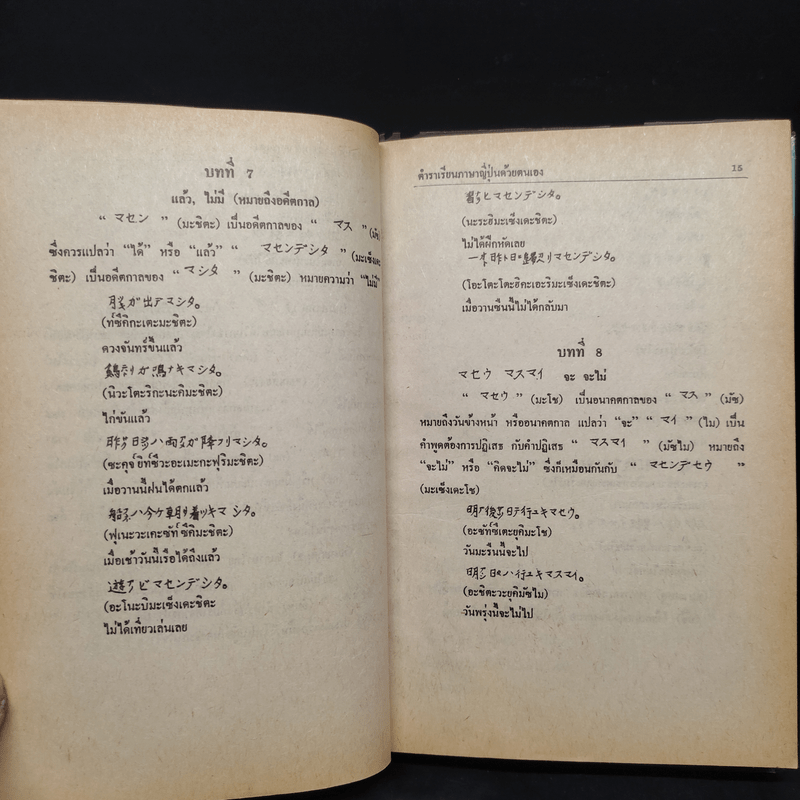 บทที่ 7
แล้ว, ไม่มี (หมายถึงอดีตกาล)
“ マセン ” (มะชิตะ) เป็นอดีตกาลของ “ マス ” (มัซ)
ซึ่งควรแปลว่า “ได้” หรือ “แล้ว” “ マセンデシタ ” (มะเซ็งเดะ
ชิตะ) เป็นอดีตกาลของ “ マシタ ” (มะชิตะ) หมายความว่า “ไม่มี”
ガ出テマシタ。
(ท์ซึคิกะเดะมะชิตะ)
ดวงจันทร์ขึ้นแล้ว
ガ鳴キマシタ。
(นิวะโตะริกะนะคิมะชิตะ)
ไก่ขันแล้ว
昨日ハ雨ガ降フリマシタ。
(ซะคุจํยิท์ซีวะอะเมะกะฟุริมะชิตะ)
เมื่อวานนี้ฝนได้ตกแล้ว
ハ今ケ朝着ツキマシタ。
(ฟุเนะวะเคะซัท์ซึคิมะชิตะ)
เมื่อเช้าวันนี้เรือได้ถึงแล้ว
遊ビマセンデシタ。
(อะโนะบิมะเซ็งเดะชิตะ
ไม่ได้เที่ยวเล่นเลย
ตำราเรียนภาษาญี่ปุ่นด้วยตนเอง 15
習ヒマセンデシタ。
(นะระฮิมะเซ็งเดะชิตะ)
ไม่ได้ฝึกหัดเลย
一昨日リマセンデシタ。
(โอะโตะโตะฮิคะเอะริมะเซ็งเดะชิตะ)
เมื่อวานซืนนี้ไม่ได้กลับมา
บทที่ 8
マセウ マスマイ จะ จะไม่
“ マセウ ” (มะโช) เป็นอนาคตกาลของ “ マス ” (มัซ)
หมายถึงวันข้างหน้า หรืออนาคตกาล แปลว่า “จะ” “ マイ ” (ไม) เป็น
คำพูดต้องการปฏิเสธ กับคำปฏิเสธ “ マスマイ ” (มัซไม) หมายถึง
“จะไม่” หรือ “คิดจะไม่” ซึ่งก็เหมือนกันกับ “ マセンデセウ ”
(มะเซ็งเดะโช)
明後日行ユキマセウ。
(อะซัท์ซีเตะยุคิมะโช)
วันมะรืนนี้จะไป
明日ハ行ユキマスマイ。
(อะชิตะวะยุคิมัซไม)
วันพรุ่งนี้จะไม่ไป